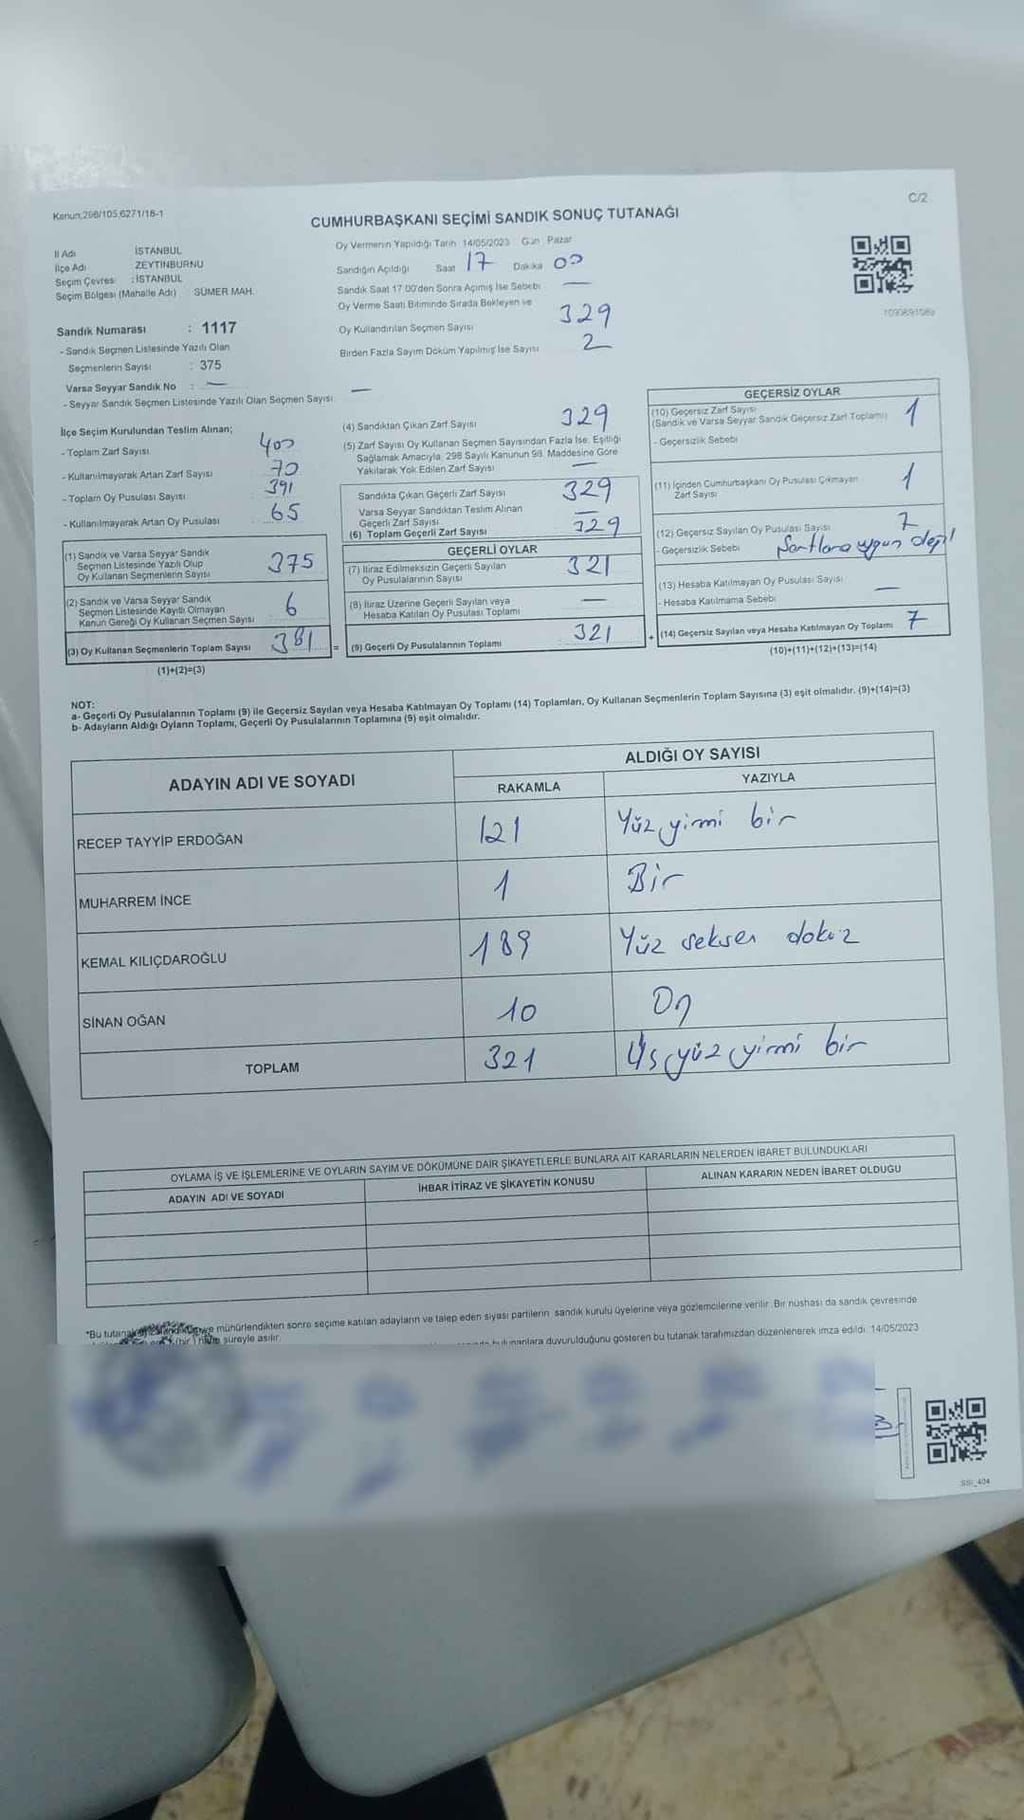 Kanun:298/105,6271/18-1
C/2
CUMHURBAŞKANI SEÇİMİ SANDIK SONUÇ TUTANAĞI
İl Adı : İSTANBUL
İlçe Adı : ZEYTİNBURNU
Seçim Çevresi : İSTANBUL
Seçim Bölgesi (Mahalle Adı) SÜMER MAH.
Oy Vermenin Yapıldığı Tarih 14/05/2023 Gün Pazar
Sandığın Açıldığı Saat 17 Dakika 00
Sandık Saat 17:00'den Sonra Açılmış İse Sebebi —
Oy Verme Saati Bitiminde Sırada Bekleyen ve
Oy Kullandırılan Seçmen Sayısı 329
Birden Fazla Sayım Döküm Yapılmış İse Sayısı 2
Sandık Numarası : 1117
- Sandık Seçmen Listesinde Yazılı Olan
Seçmenlerin Sayısı : 375
Varsa Seyyar Sandık No : —
- Seyyar Sandık Seçmen Listesinde Yazılı Olan Seçmen Sayısı —
İlçe Seçim Kurulundan Teslim Alınan;
- Toplam Zarf Sayısı 400
- Kullanılmayarak Artan Zarf Sayısı 70
- Toplam Oy Pusulası Sayısı 391
- Kullanılmayarak Artan Oy Pusulası 65
(1) Sandık ve Varsa Seyyar Sandık
Seçmen Listesinde Yazılı Olup
Oy Kullanan Seçmenlerin Sayısı 375
(2) Sandık ve Varsa Seyyar Sandık
Seçmen Listesinde Kayıtlı Olmayan
Kanun Gereği Oy Kullanan Seçmen Sayısı 6
(3) Oy Kullanan Seçmenlerin Toplam Sayısı 381
(1)+(2)=(3)
(4) Sandıktan Çıkan Zarf Sayısı 329
(5) Zarf Sayısı Oy Kullanan Seçmen Sayısından Fazla İse, Eşitliği
Sağlamak Amacıyla, 298 Sayılı Kanunun 98. Maddesine Göre
Yakılarak Yok Edilen Zarf Sayısı —
Sandıkta Çıkan Geçerli Zarf Sayısı 329
Varsa Seyyar Sandıktan Teslim Alınan
Geçerli Zarf Sayısı —
(6) Toplam Geçerli Zarf Sayısı 329
GEÇERLİ OYLAR
(7) İtiraz Edilmeksizin Geçerli Sayılan
Oy Pusulalarının Sayısı 321
(8) İtiraz Üzerine Geçerli Sayılan veya
Hesaba Katılan Oy Pusulası Toplamı —
= (9) Geçerli Oy Pusulalarının Toplamı 321
GEÇERSİZ OYLAR
(10) Geçersiz Zarf Sayısı
(Sandık ve Varsa Seyyar Sandık Geçersiz Zarf Toplamı) 1
- Geçersizlik Sebebi
(11) İçinden Cumhurbaşkanı Oy Pusulası Çıkmayan
Zarf Sayısı 1
(12) Geçersiz Sayılan Oy Pusulası Sayısı 7
- Geçersizlik Sebebi Şartlara uygun değil
(13) Hesaba Katılmayan Oy Pusulası Sayısı —
- Hesaba Katılmama Sebebi
+ (14) Geçersiz Sayılan veya Hesaba Katılmayan Oy Toplamı 7
(10)+(11)+(12)+(13)=(14)
NOT:
a- Geçerli Oy Pusulalarının Toplamı (9) ile Geçersiz Sayılan veya Hesaba Katılmayan Oy Toplamı (14) Toplamları, Oy Kullanan Seçmenlerin Toplam Sayısına (3) eşit olmalıdır. (9)+(14)=(3)
b- Adayların Aldığı Oyların Toplamı, Geçerli Oy Pusulalarının Toplamına (9) eşit olmalıdır.
ADAYIN ADI VE SOYADI
ALDIĞI OY SAYISI
RAKAMLA YAZIYLA
RECEP TAYYİP ERDOĞAN 121 Yüz yirmi bir
MUHARREM İNCE 1 Bir
KEMAL KILIÇDAROĞLU 189 Yüz seksen dokuz
SİNAN OĞAN 10 On
TOPLAM 321 Üçyüz yirmi bir
OYLAMA İŞ VE İŞLEMLERİNE VE OYLARIN SAYIM VE DÖKÜMÜNE DAİR ŞİKAYETLERLE BUNLARA AİT KARARLARIN NELERDEN İBARET BULUNDUKLARI
ADAYIN ADI VE SOYADI İHBAR İTİRAZ VE ŞİKAYETİN KONUSU ALINAN KARARIN NEDEN İBARET OLDUĞU
*Bu tutanak mühürlendikten sonra seçime katılan adayların ve talep eden siyasi partilerin sandık kurulu üyelerine veya gözlemcilerine verilir. Bir nüshası da sandık çevresinde
süreyle asılır.
bulunanlara duyurulduğunu gösteren bu tutanak tarafımızdan düzenlenerek imza edildi. 14/05/2023
SSİ_404